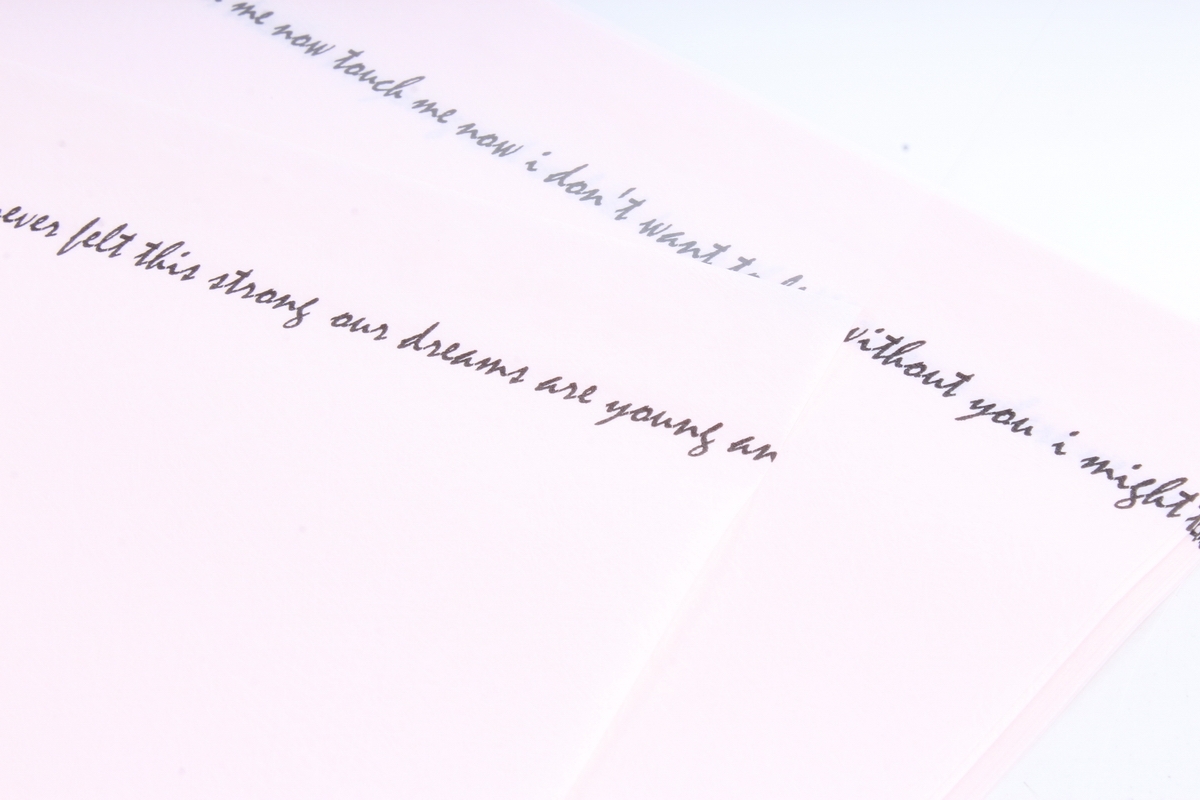 me now touch me now i don't want to
ever felt this strong our dreams are young an
without you i might